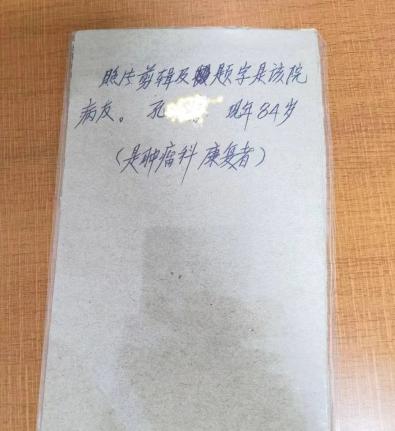 照片剪辑及题字是该院
病友。孔 现年84岁
（是肿瘤科康复者）